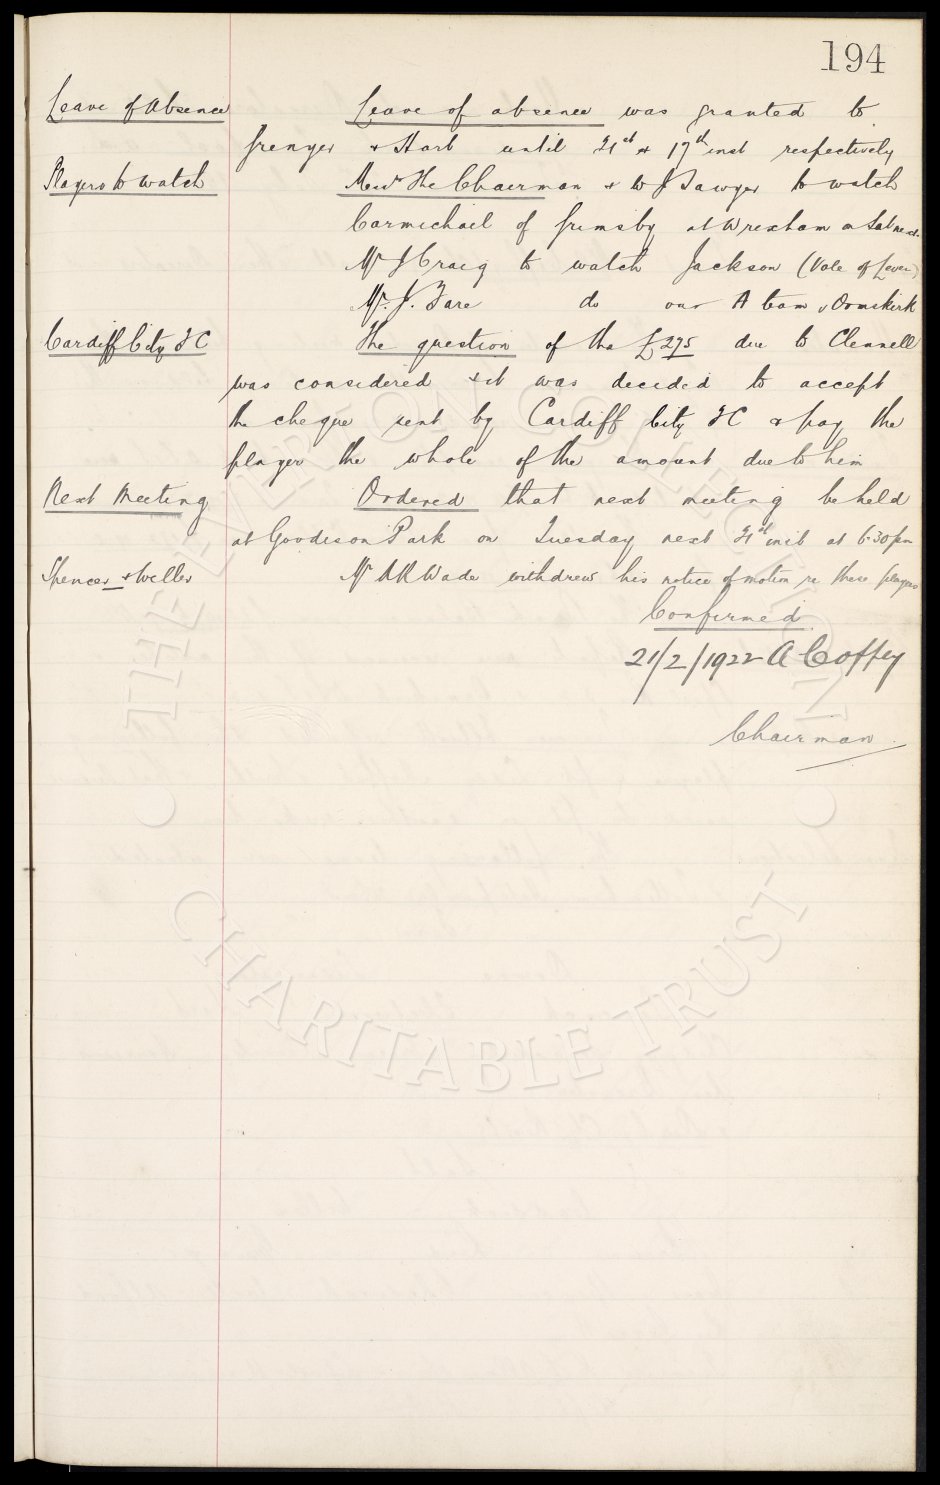 194
Leave of Absence Leave of absence was granted to
Grenyer & Hart until 21st & 17th inst respectively
Players to watch Messrs The Chairman & W J Sawyer to watch
Carmichael of Grimsby at Wrexham on Sat next.
Mr J Craig to watch Jackson (Vale of Leven)
Mr. J. Fare do our A team v Ormskirk
Cardiff City FC The question of the £275 due to Clennell
was considered & it was decided to accept
the cheque sent by Cardiff City FC & pay the
player the whole of the amount due to him
Next Meeting Ordered that next meeting be held
at Goodison Park on Tuesday next 21st inst at 6.30pm
Spencer & Weller Mr A R Wade withdrew his notice of motion re these players
Confirmed
21/2/1922 A Coffey
Chairman
THE EVERTON COLLECTION
CHARITABLE TRUST